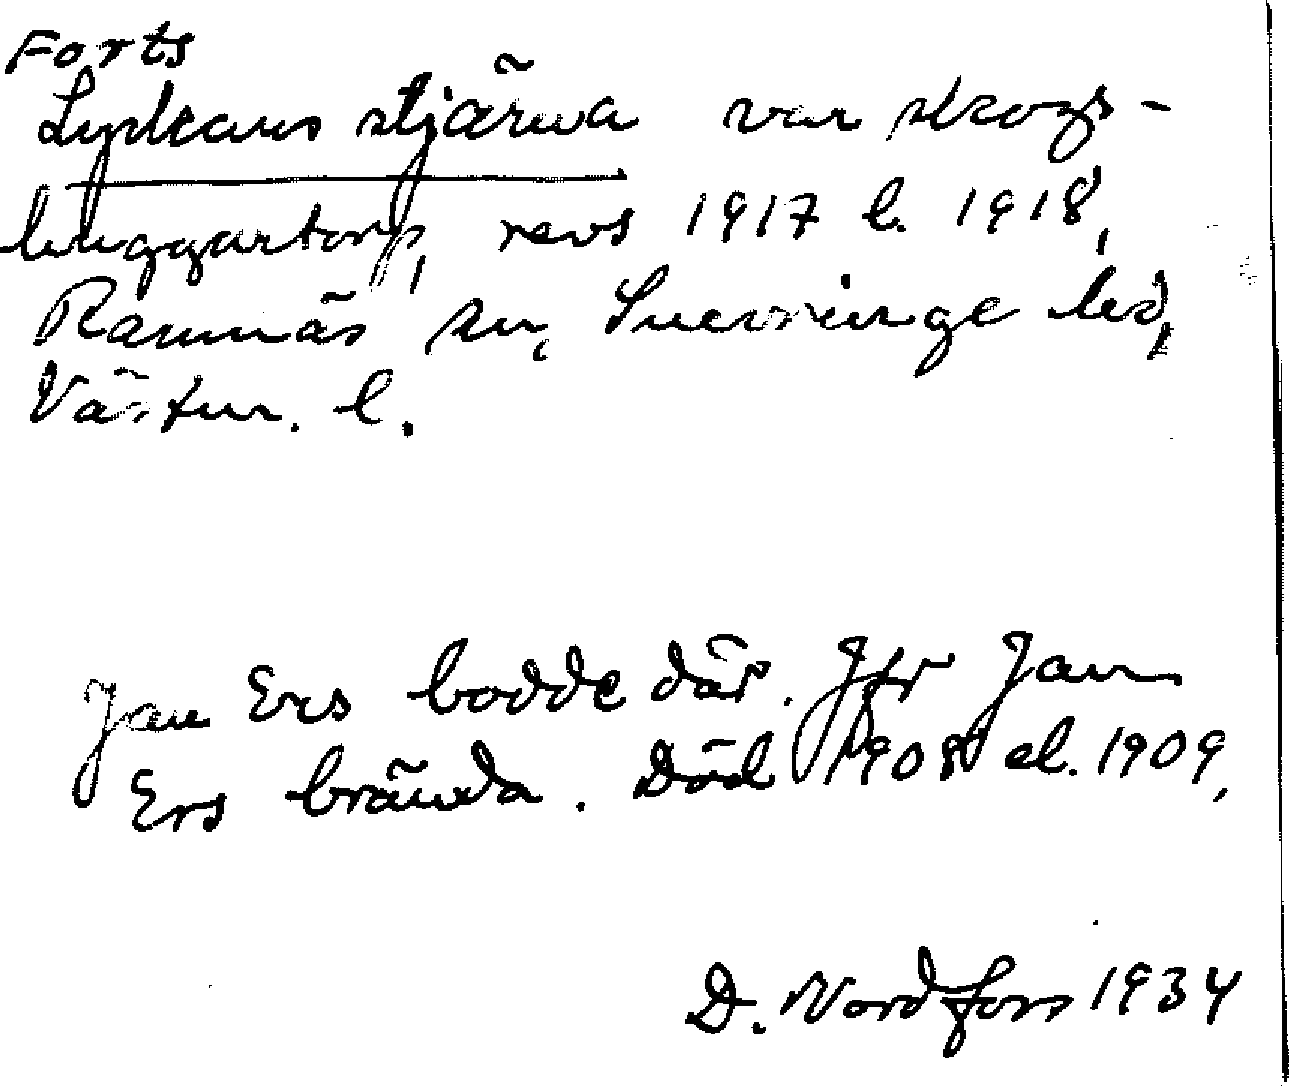 Forts
Lyckans stjärna var skogs-
huggartorp, revs 1917 l. 1918,
Ramnäs sn, Snevringe hd,
Västm. l.
Jan Ers bodde där. Jfr Jan
Ers brända. Död 1908 el. 1909,
D. Nordfors 1934